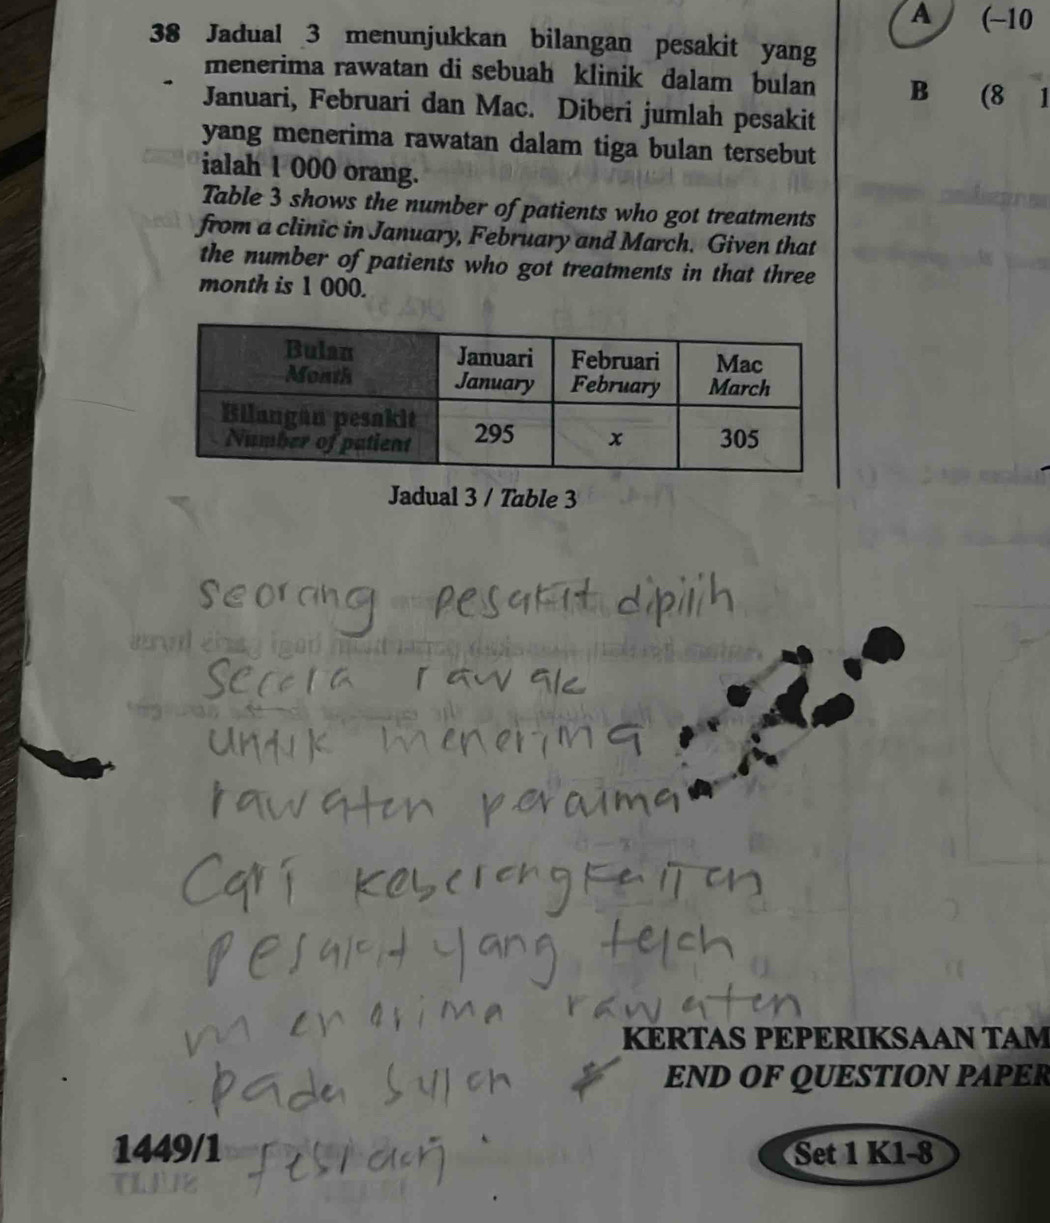 38 Jadual 3 menunjukkan bilangan pesakit yang
menerima rawatan di sebuah klinik dalam bulan
Januari, Februari dan Mac. Diberi jumlah pesakit
yang menerima rawatan dalam tiga bulan tersebut
ialah 1 000 orang.
Table 3 shows the number of patients who got treatments
from a clinic in January, February and March. Given that
the number of patients who got treatments in that three
month is 1 000.
Bulan Januari Februari Mac
Month January February March
Bilangan pesakit
Number of patient 295 x 305
Jadual 3 / Table 3
seorang pesakit dipilih
secara rawak
untuk menerima
rawaten
Cari
pesakit yang
menerima rawaten
pada
KERTAS PEPERIKSAAN TAM
END OF QUESTION PAPER
1449/1
Set 1 K1-8
A (–10
B (8 1